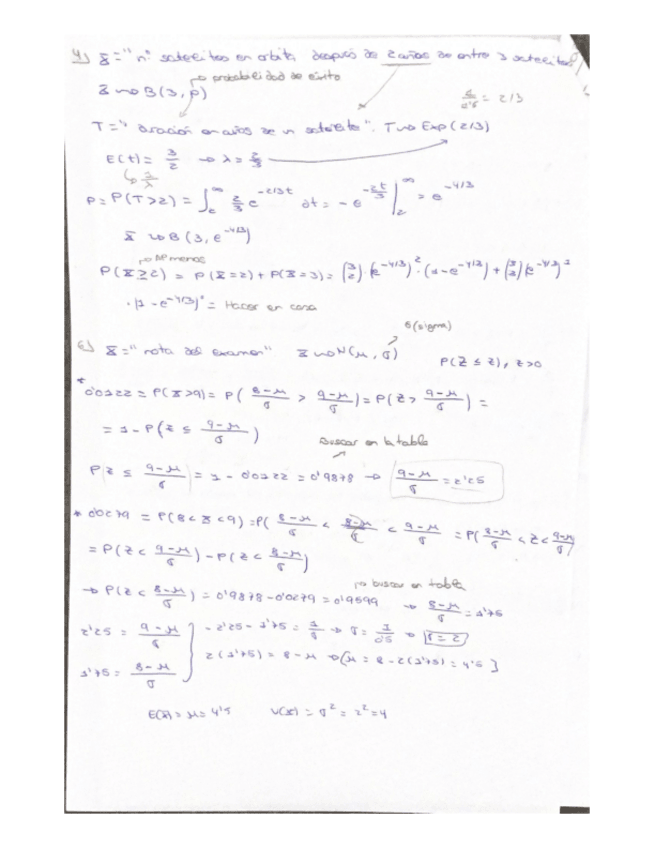 4) X = "nº satelites en orbita después de 2 años de entre 3 satelites"
→ probabilidad de exito
X ~> B(3, p)
1/1'5 = 2/3
T = "duración en años de un satelite". T ~> Exp(2/3)
E(t) = 3/2 → λ = 2/3
↳ 1/λ
P = P(T>2) = ∫₂^∞ 2/3 e^(-2/3t) dt = - e^(-2t/3) |₂^∞ = e^(-4/3)
X ~> B(3, e^(-4/3))
→ Al menos
P(X ≥ 2) = P(X=2) + P(X=3) = (3 2)·(e^(-4/3))²·(1-e^(-4/3)) + (3 3)(e^(-4/3))³
·(1-e^(-4/3))⁰ = Hacer en casa
6(sigma)
6) X = "nota del examen" X ~> N(μ, σ) P(Z ≤ z), z>0
* 0'0122 = P(X>9) = P( (X-μ)/σ > (9-μ)/σ ) = P(Z > (9-μ)/σ ) =
= 1 - P(Z ≤ (9-μ)/σ )
Buscar en la tabla
P(Z ≤ (9-μ)/σ ) = 1 - 0'0122 = 0'9878 → (9-μ)/σ = 2'25
* 0'0279 = P(8<X<9) = P( (8-μ)/σ < (X-μ)/σ < (9-μ)/σ = P( (8-μ)/σ < Z < (9-μ)/σ )
= P(Z < (9-μ)/σ ) - P(Z < (8-μ)/σ )
→ buscar en tabla
→ P(Z < (8-μ)/σ ) = 0'9878 - 0'0279 = 0'9599 → (8-μ)/σ = 1'75
2'25 = (9-μ)/σ } → 2'25 - 1'75 = 1/σ → σ = 1/0'5 → σ = 2
1'75 = (8-μ)/σ } 2(1'75) = 8-μ → (μ = 8-2(1'75) = 4'5 }
E(X) = μ = 4'5 V(X) = σ² = 2² = 4